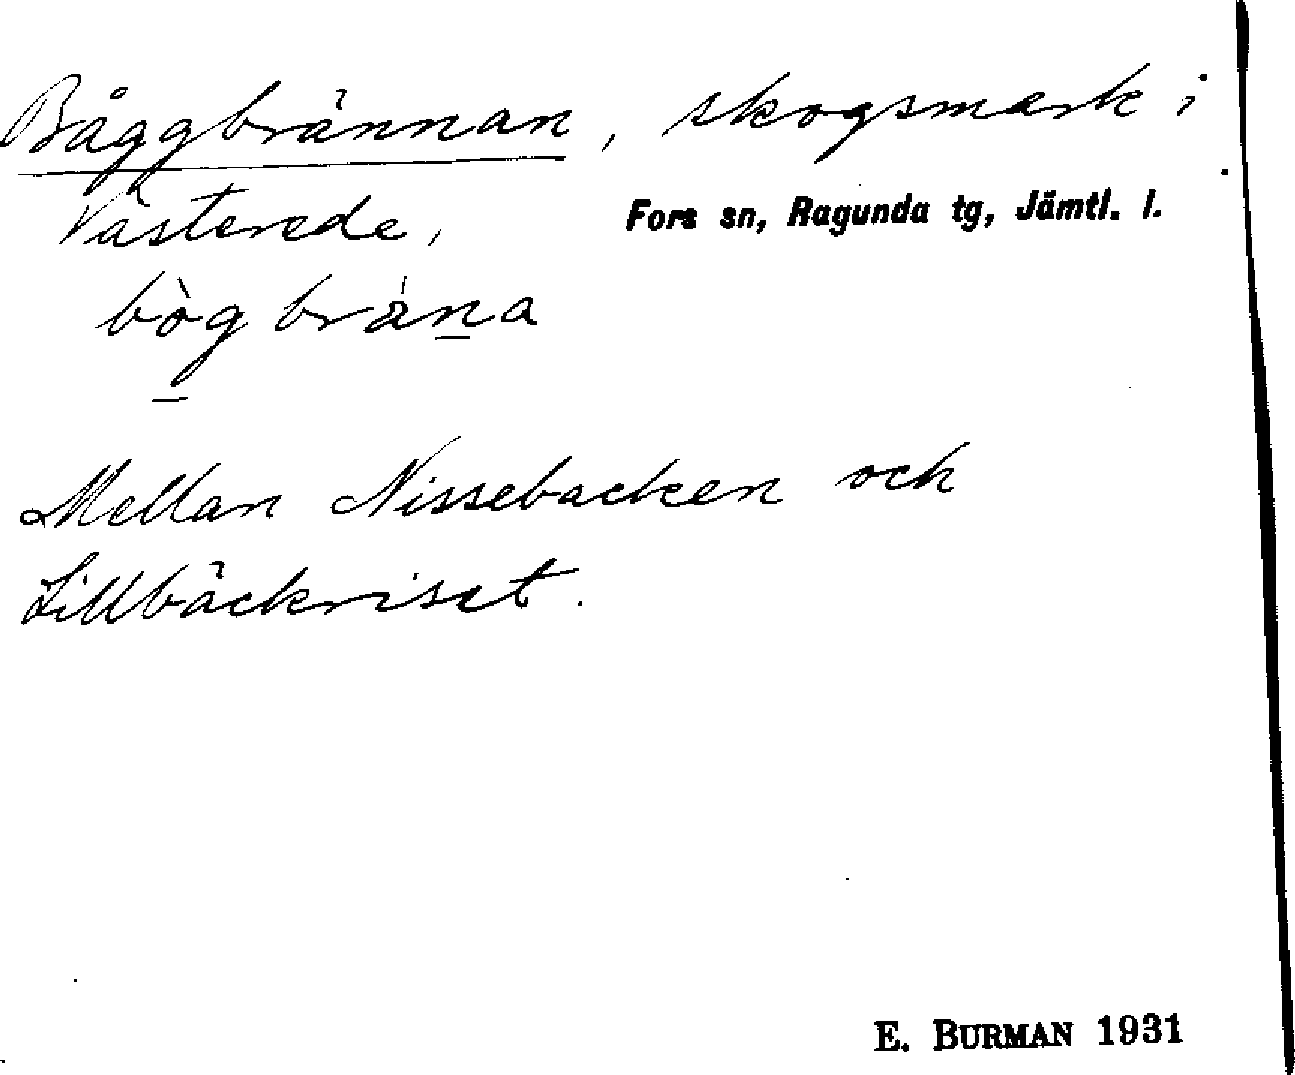 Båggbrännan, skogsmark i
Västerede, Fors sn, Ragunda tg, Jämtl. l.
bò̀g bràṉa
Mellan Nissebacken och
Lillbäckriset.
E. BURMAN 1931